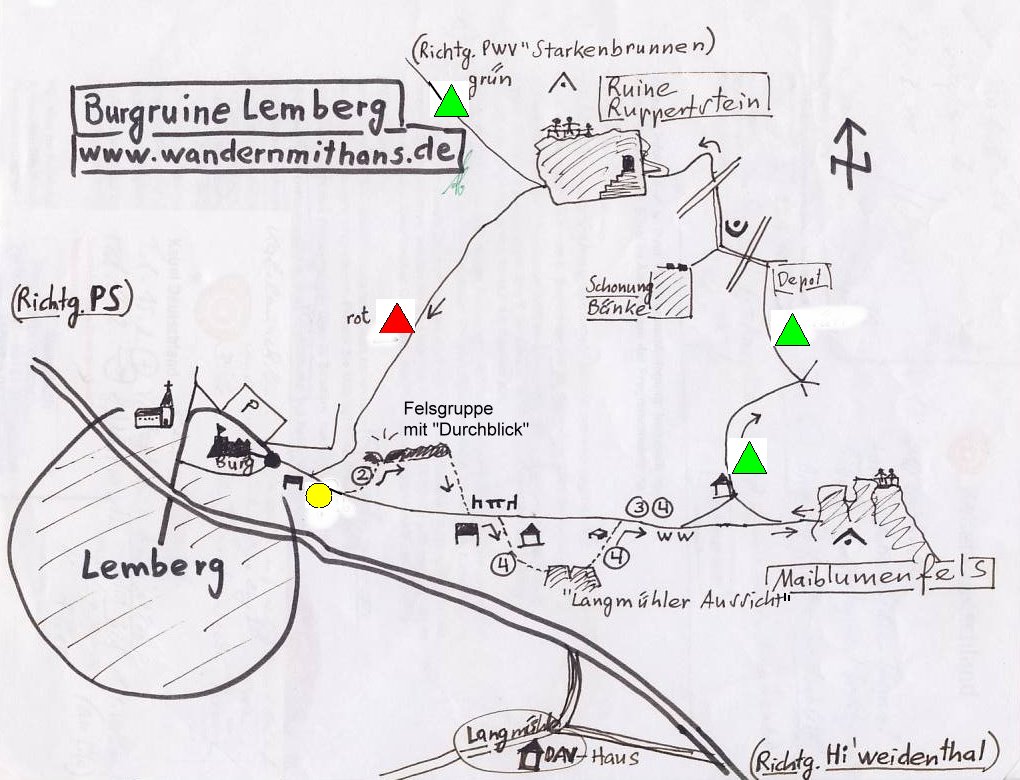 (Richtg. PWV "Starkenbrunnen)
grün
Burgruine Lemberg
www.wandernmithans.de
Ruine
Ruppertstein
N
Schonung
Bänke
Depot
(Richtg. PS)
rot
P
Felsgruppe
mit "Durchblick"
Burg
2
3 4
ww
4
4
Lemberg
"Langmühler Aussicht"
Maiblumenfels
Langmühle
DAV-Haus
(Richtg. Hi'weidenthal)